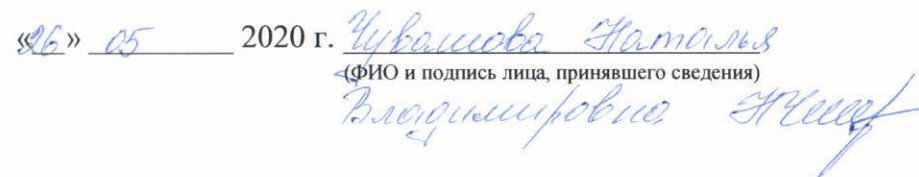 «26» 05 2020 г. Чувашова Наталья
(ФИО и подпись лица, принявшего сведения)
Владимировна